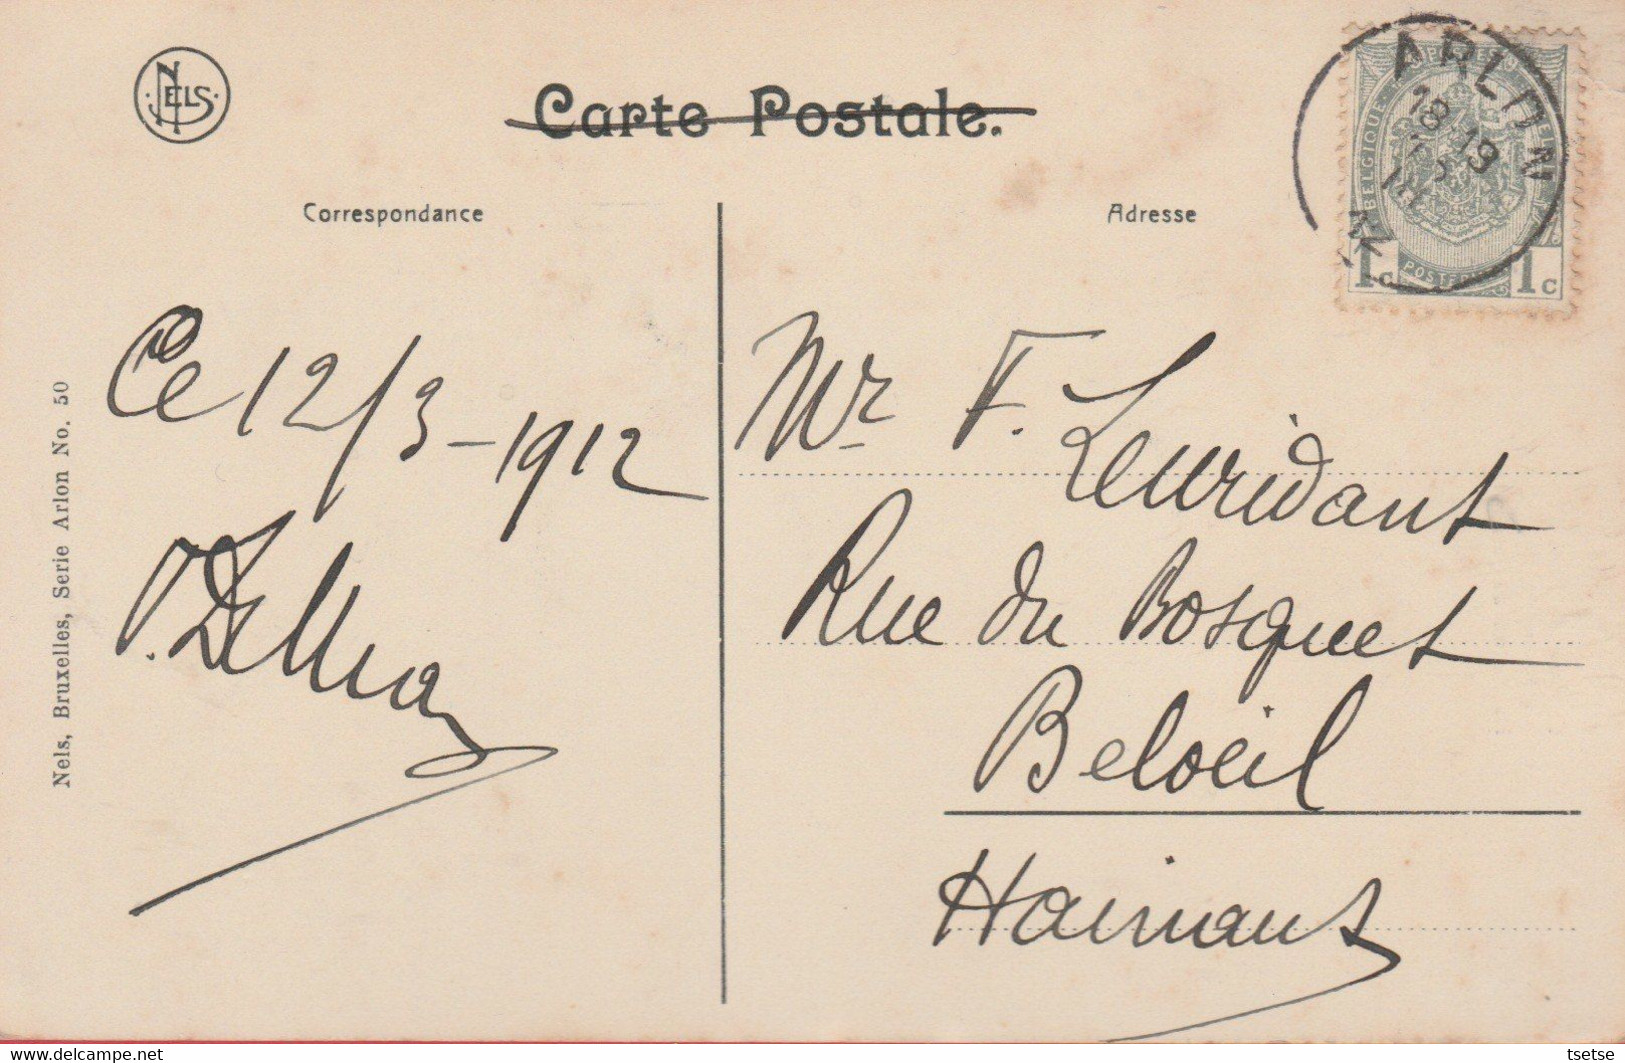 NELS
Carte Postale.
Correspondance
Adresse
ARLON
18-19
BELGIQUE
1c
1c
Ce 12/3-1912
Mr F. Leuridant
Rue du Bosquet
Beloeil
Hainaut
Nels, Bruxelles, Serie Arlon No. 50
delcampe.net
tsetse